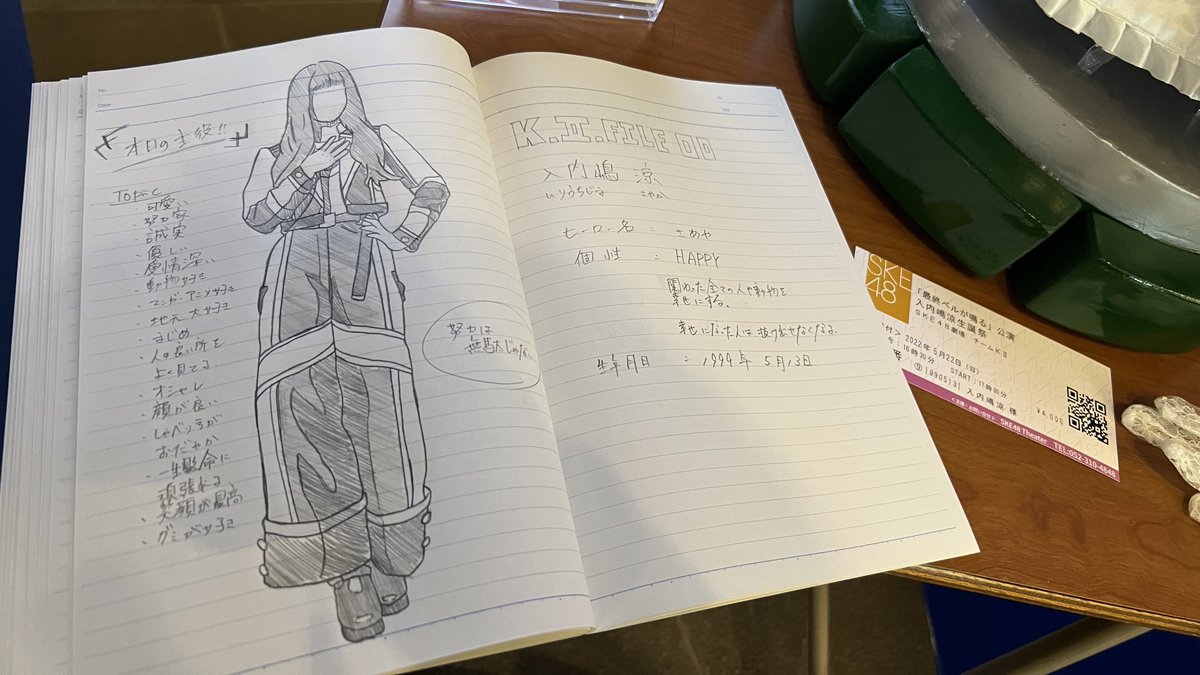 No.
Date
本日の主役!!
Topic
・可愛い
・努力家
・誠実
・優しい
・愛情深い
・動物好き
・マンガ・アニメ好き
・地元大好き
・まじめ
・人の良い所を
よく見てる
・オシャレ
・顔が良い
・しゃべり方が
おだやか
・一生懸命に
頑張れる
・笑顔が最高
・グミが好き
努力は
無駄じゃない
No.
Date
K.II.FILE 00
入内嶋 涼
いりうちじま さやか
ヒーロー名 : さあや
個性 : HAPPY
関わった全ての人や動物を
幸せにする。
幸せになった人は抜け出せなくなる。
生年月日 : 1999年 5月13日
SKE
48
「最終ベルが鳴る」公演
入内嶋涼生誕祭
SKE48劇場 チームKⅡ
2022年5月22日(日)
16時30分 START:17時00分
入内嶋涼 様
¥4,000
SKE48 Theater TEL:052-310-4848